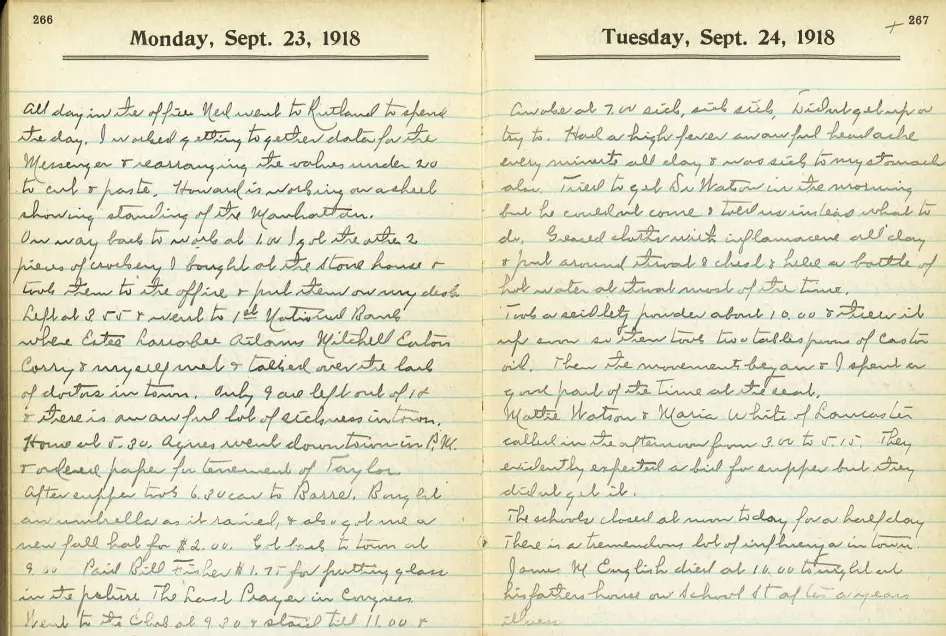 266
Monday, Sept. 23, 1918
All day in the office Ned went to Rutland to spend
the day. I worked getting together data for the
Messenger & rearranging the values under 20
to cut & paste. Howard is working on a sheet
showing standing of the Manhattan.
On way back to work at 1.00 I got the other 2
pieces of crockery I bought at the stone house &
took them to the office & put them on my desk
Left at 3 55 & went to 1st National Bank
where Estee Larrabee Adams Mitchell Eaton
Corry & myself met & talked over the lack
of doctors in town. Only 9 are left out of 18
& there is an awful lot of sickness in town.
Home at 5.30. Agnes went down town in P.M.
& ordered paper for tenement of Taylor
After supper took 6.30 car to Barre. Bought
an umbrella as it rained, & also got me a
new fall hat for $2.00. Got back to town at
9.00 Paid Bill Fisher $1.75 for putting glass
in the picture The Last Prayer in Congress
Went to the Club at 9 30 & staid till 11.00 &
267
Tuesday, Sept. 24, 1918
Awoke at 7.00 sick, sick sick, Didnt get up or
try to. Had a high fever an awful headache
every minute all day & was sick to my stomach
also. Tried to get Dr Watson in the morning
but he couldnt come & told us instead what to
do. Greased cloths with inflamacine all day
& put around throat & chest & held a bottle of
hot water at throat most of the time.
Took a seidletz powder about 10.00 & threw it
up soon so then took two tablespoons of Castor
oil. Then the movements began & I spent a
good part of the time at the seat.
Mattie Watson & Maria White of Lancaster
called in the afternoon from 3.00 to 5.15. They
evidently expected a bid for supper but they
didnt get it.
The schools closed at noon today for a half day
There is a tremendous lot of influenza in town.
James M English died at 10.00 tonight at
his fathers house on School St after a years
illness